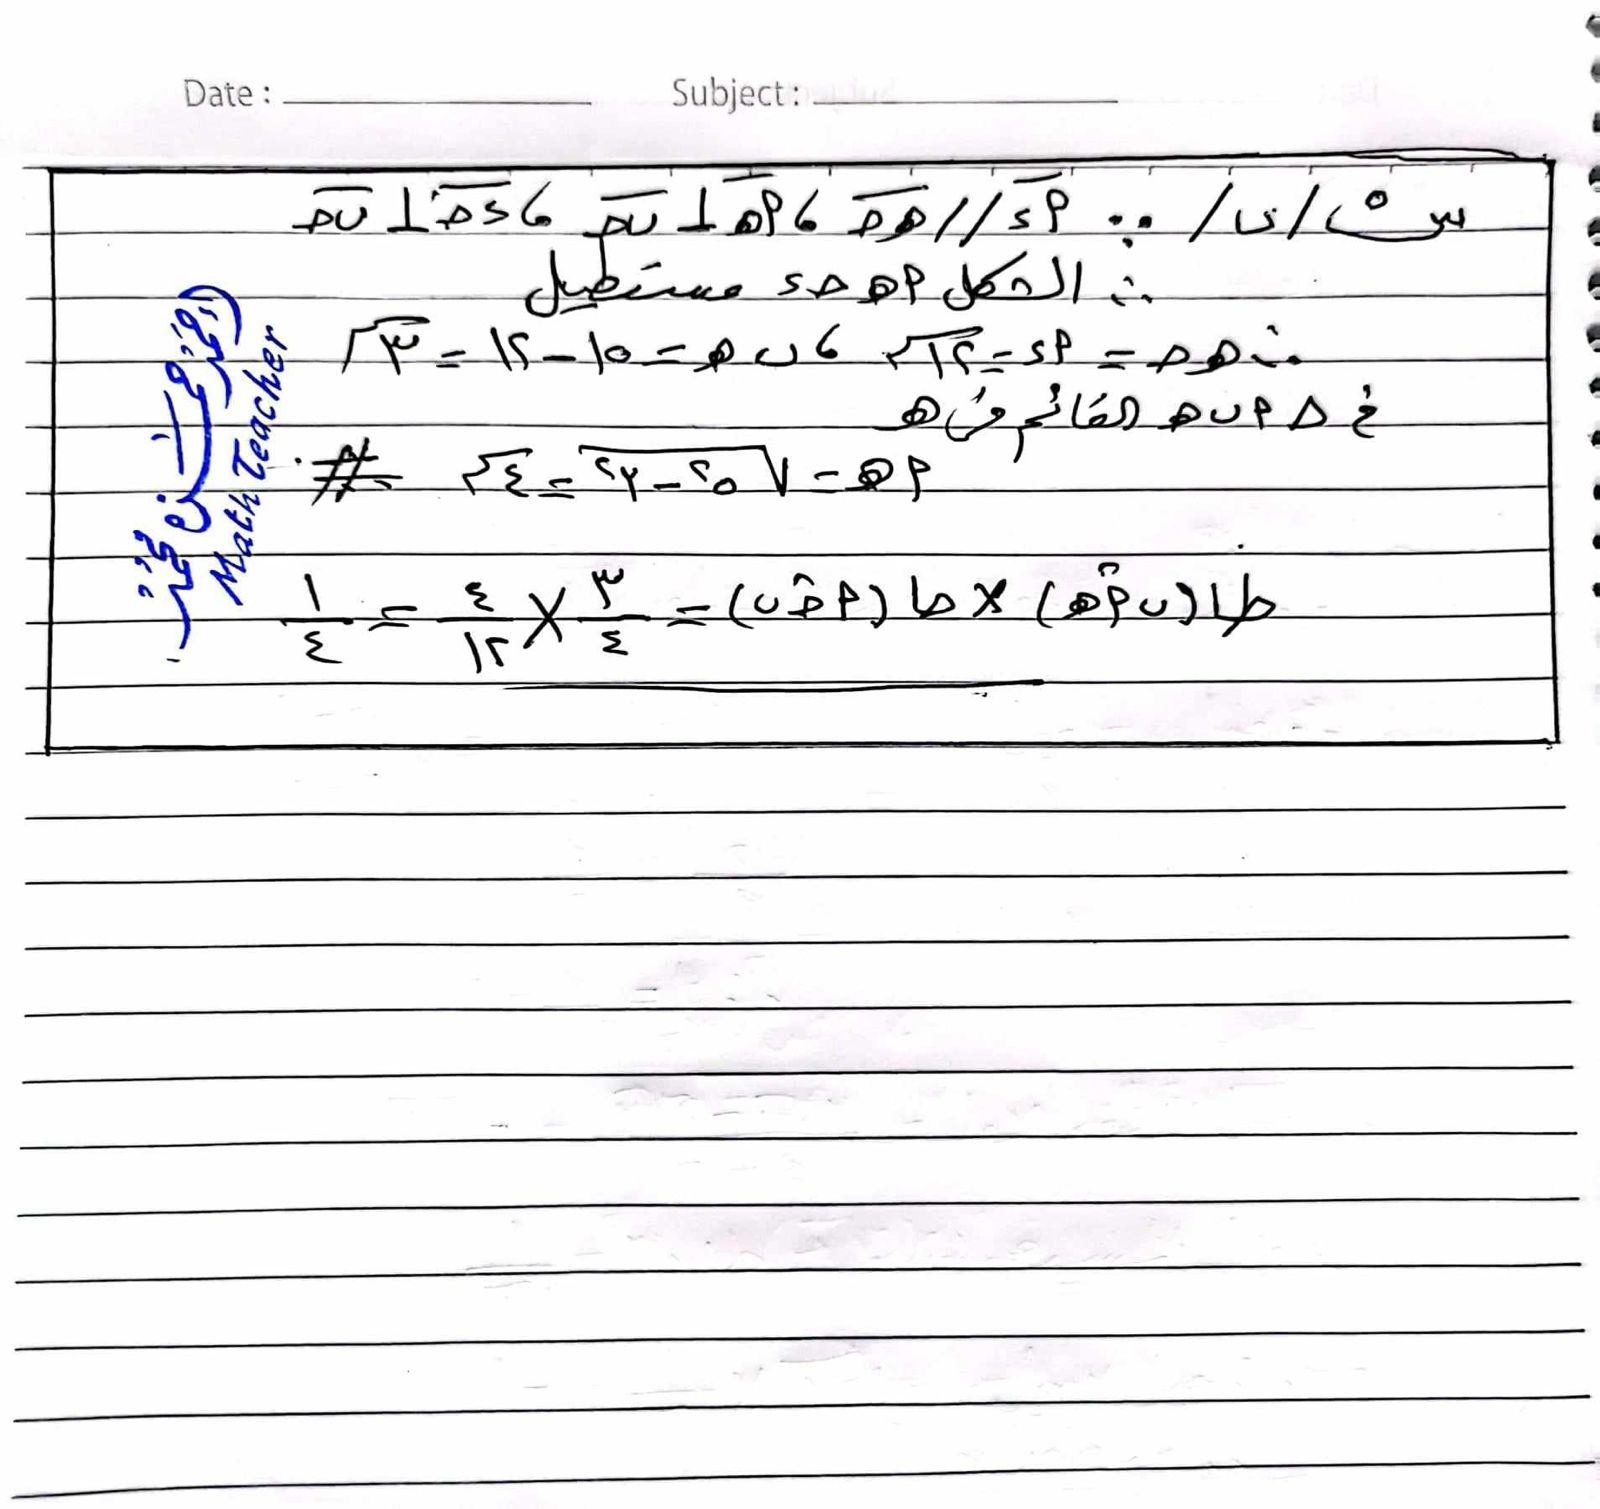 Date : Subject :
س ٥ / ب / ∵ أد // هـ جـ ، أهـ ⊥ ب جـ ، د جـ ⊥ ب جـ
∴ الشكل أ هـ جـ د مستطيل
∴ هـ جـ = أد = ١٢سم ، ب هـ = ١٥ - ١٢ = ٣سم
في Δ أ ب هـ القائم في هـ
أهـ = √(٥² - ٣²) = ٤سم #
طا (ب أ هـ) × طا (أ جـ ب) = ٣/٤ × ٤/١٢ = ١/٤
Math Teacher